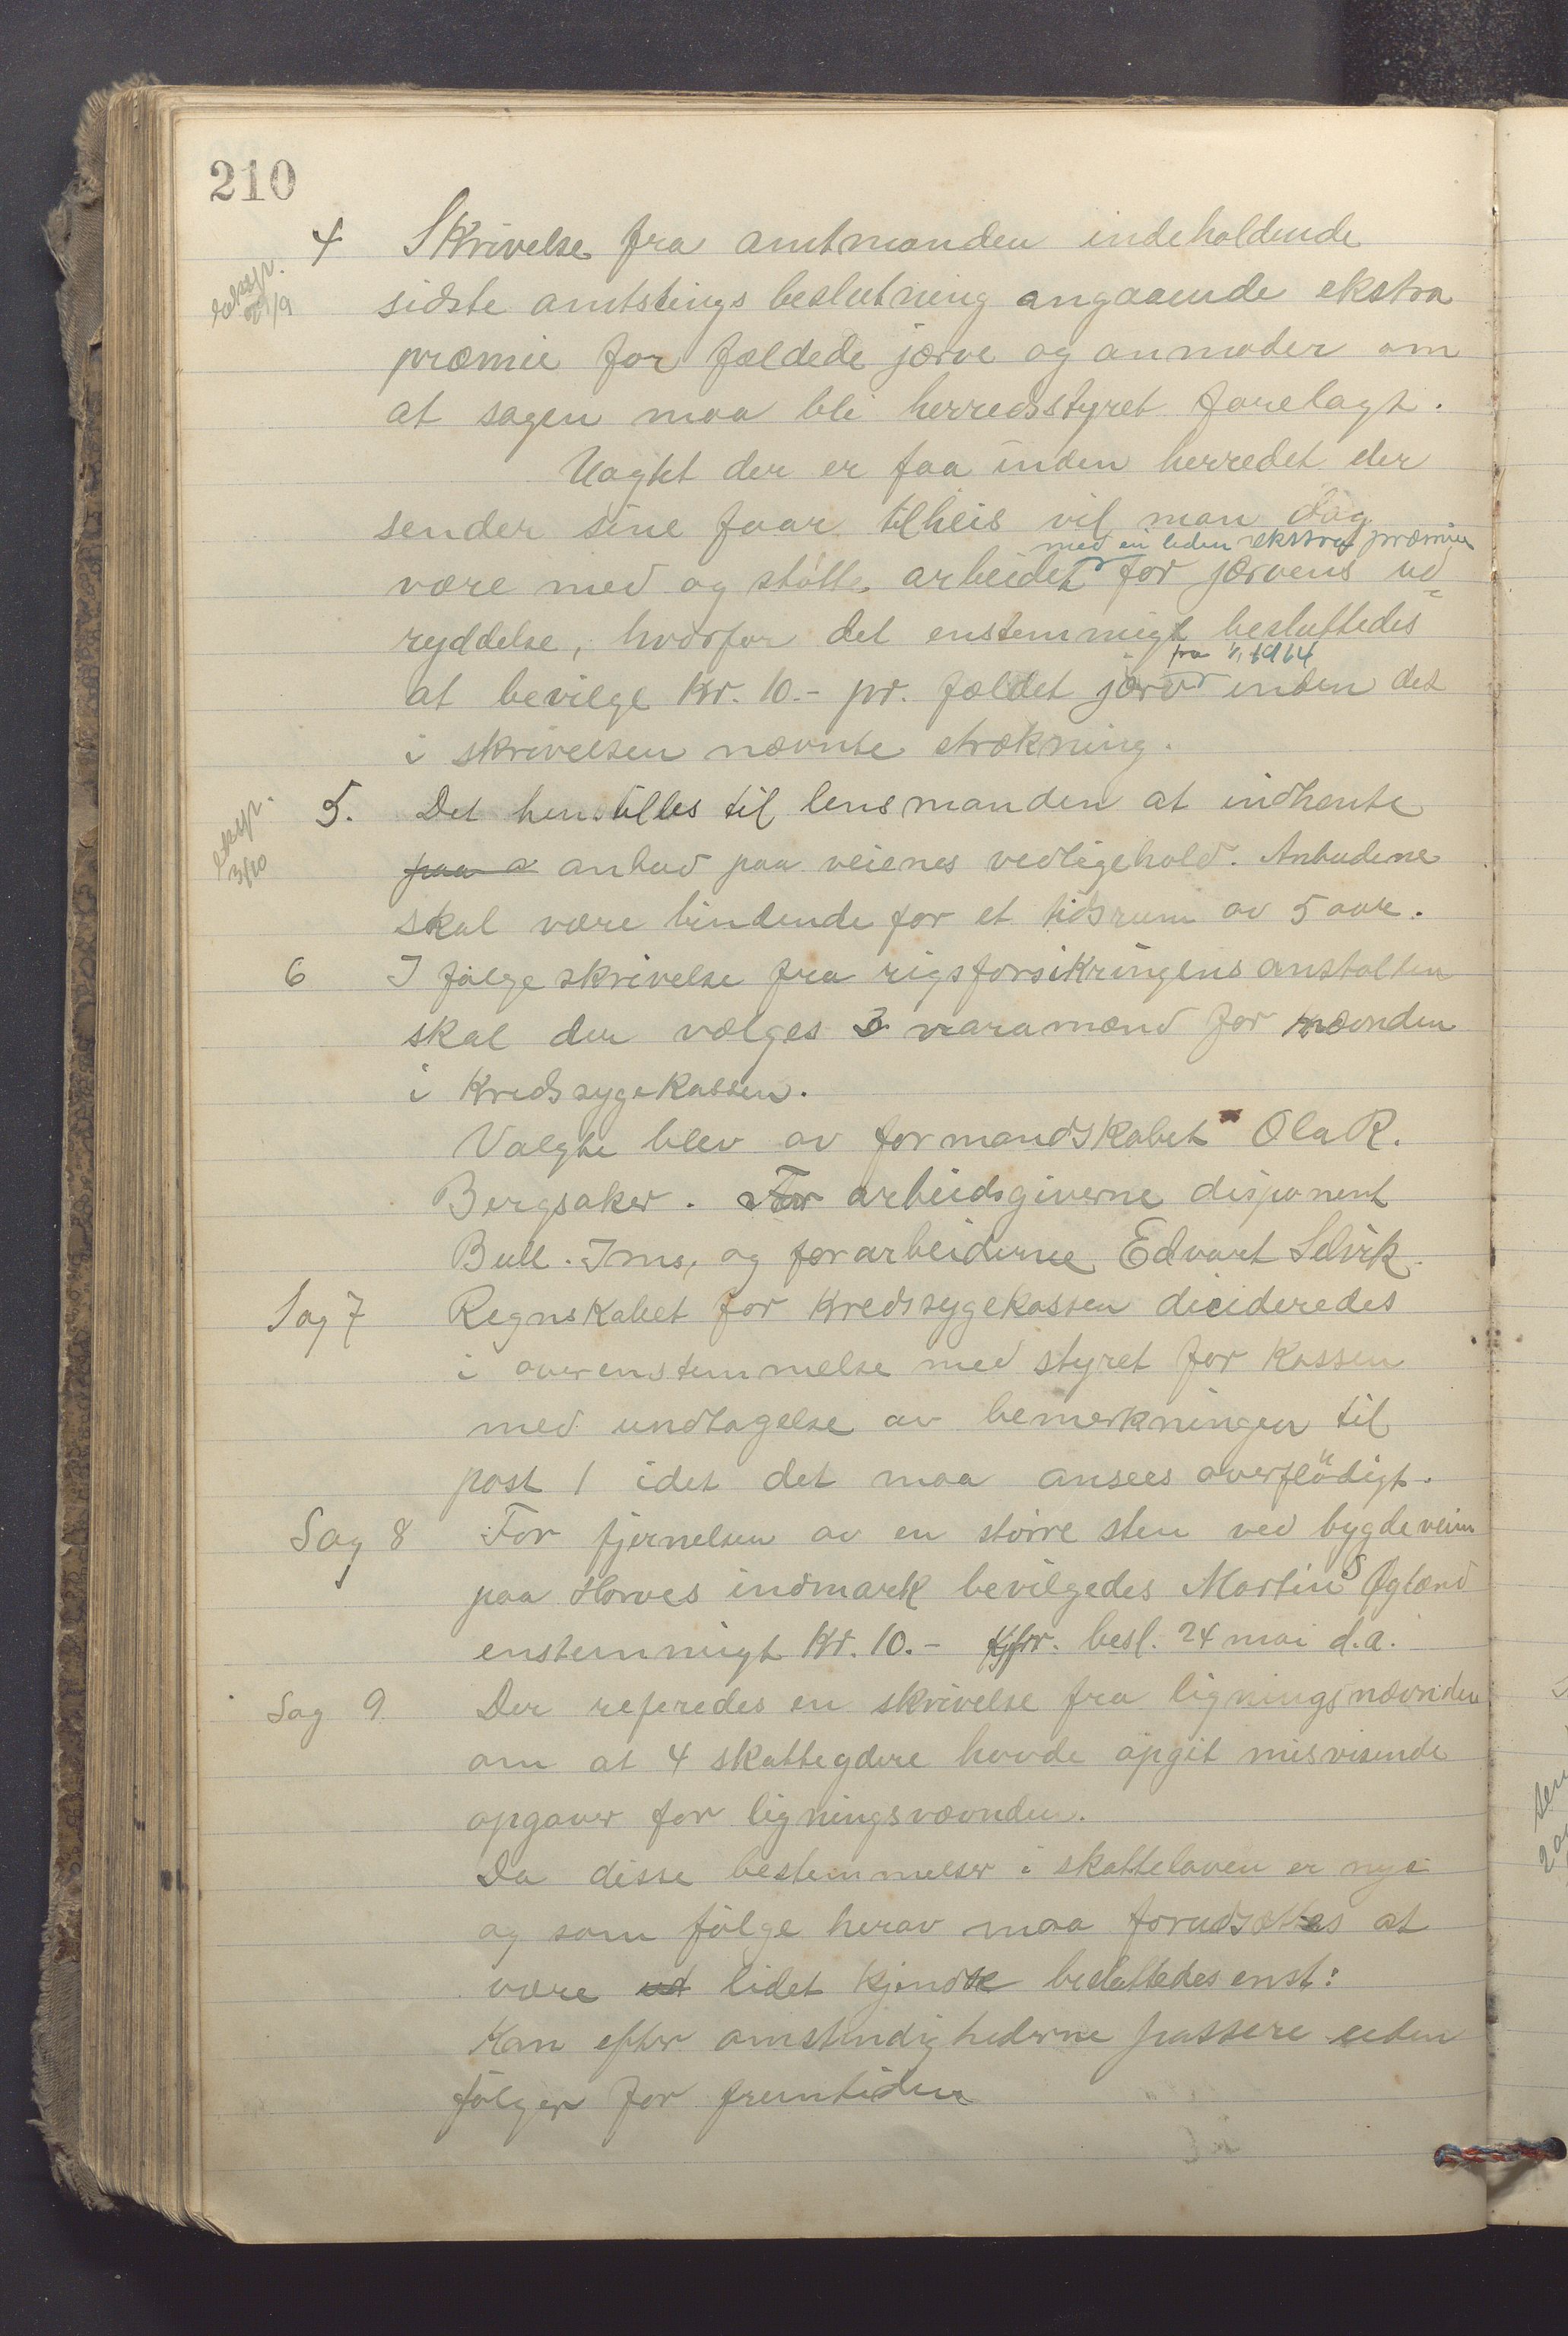 210
4 Skrivelse fra amtmanden indeholdende
eksp. /9
sidste amtstings beslutning angaaende ekstra
præmie for fældede jærve og anmoder om
at sagen maa bli herredsstyret forelagt.
Uagtet der er faa inden herredet der
sender sine faar tilheis vil man dog
med en liden ekstra præmie
være med og støtte arbeidet for jærvens ud=
ryddelse, hvorfor det enstemmigt besluttedes
fra 1/1 1914
at bevilge Kr. 10.- pr. fældet jærv inden det
i skrivelsen nævnte strækning.
5. Det henstilles til lensmanden at indhente
eksp. 3/10
paa a anbud paa veienes vedligehold. Anbudene
skal være bindende for et tidsrum av 5 aar.
6 I følge skrivelse fra rigsforsikringens anstalten
skal der vælges 3 varamænd for nævnden
i Kredssygekassen.
Valgte blev av formandskabet Ola R.
Bergsaker. For arbeidsgiverne disponent
Bull. Ims, og for arbeiderne Edvart Selvik.
Sag 7 Regnskabet for Kredssygekassen decideredes
i overenstemmelse med styret for Kassen
med undtagelse av bemerkningen til
post 1 idet det maa ansees overflødigt.
Sag 8 For fjernelsen av en større sten ved bygdeveien
paa Horves indmark bevilgedes Martin S Øgland
enstemmigt Kr. 10.- kfr. besl. 24 mai d.a.
Sag 9 Der referedes en skrivelse fra ligningsnævnden
om at 4 skattegdere havde opgit misvisende
opgaver for ligningsnævnden.
Da disse bestemmelser i skatteloven er nye
og som følge herav maa forudsættes at
være ud lidet kjendte besluttedes enst:
Kan efter omstendighederne passere uden
følger for fremtiden